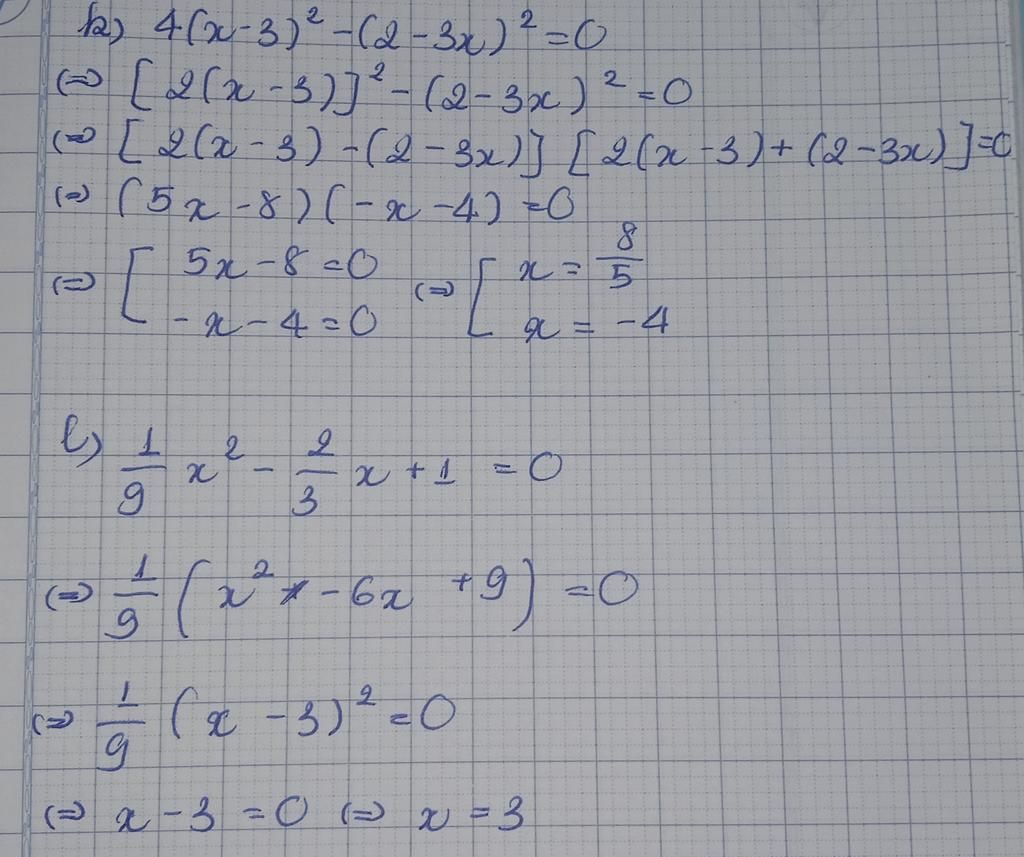 k) 4(x-3)² - (2-3x)² = 0
⇔ [2(x-3)]² - (2-3x)² = 0
⇔ [2(x-3) - (2-3x)] [2(x-3) + (2-3x)] = 0
⇔ (5x-8)(-x-4) = 0
⇔ [ 5x-8=0 ⇔ [ x = 8/5
-x-4=0 x = -4
l) 1/9 x² - 2/3 x + 1 = 0
⇔ 1/9 (x² - 6x + 9) = 0
⇔ 1/9 (x - 3)² = 0
⇔ x - 3 = 0 ⇔ x = 3